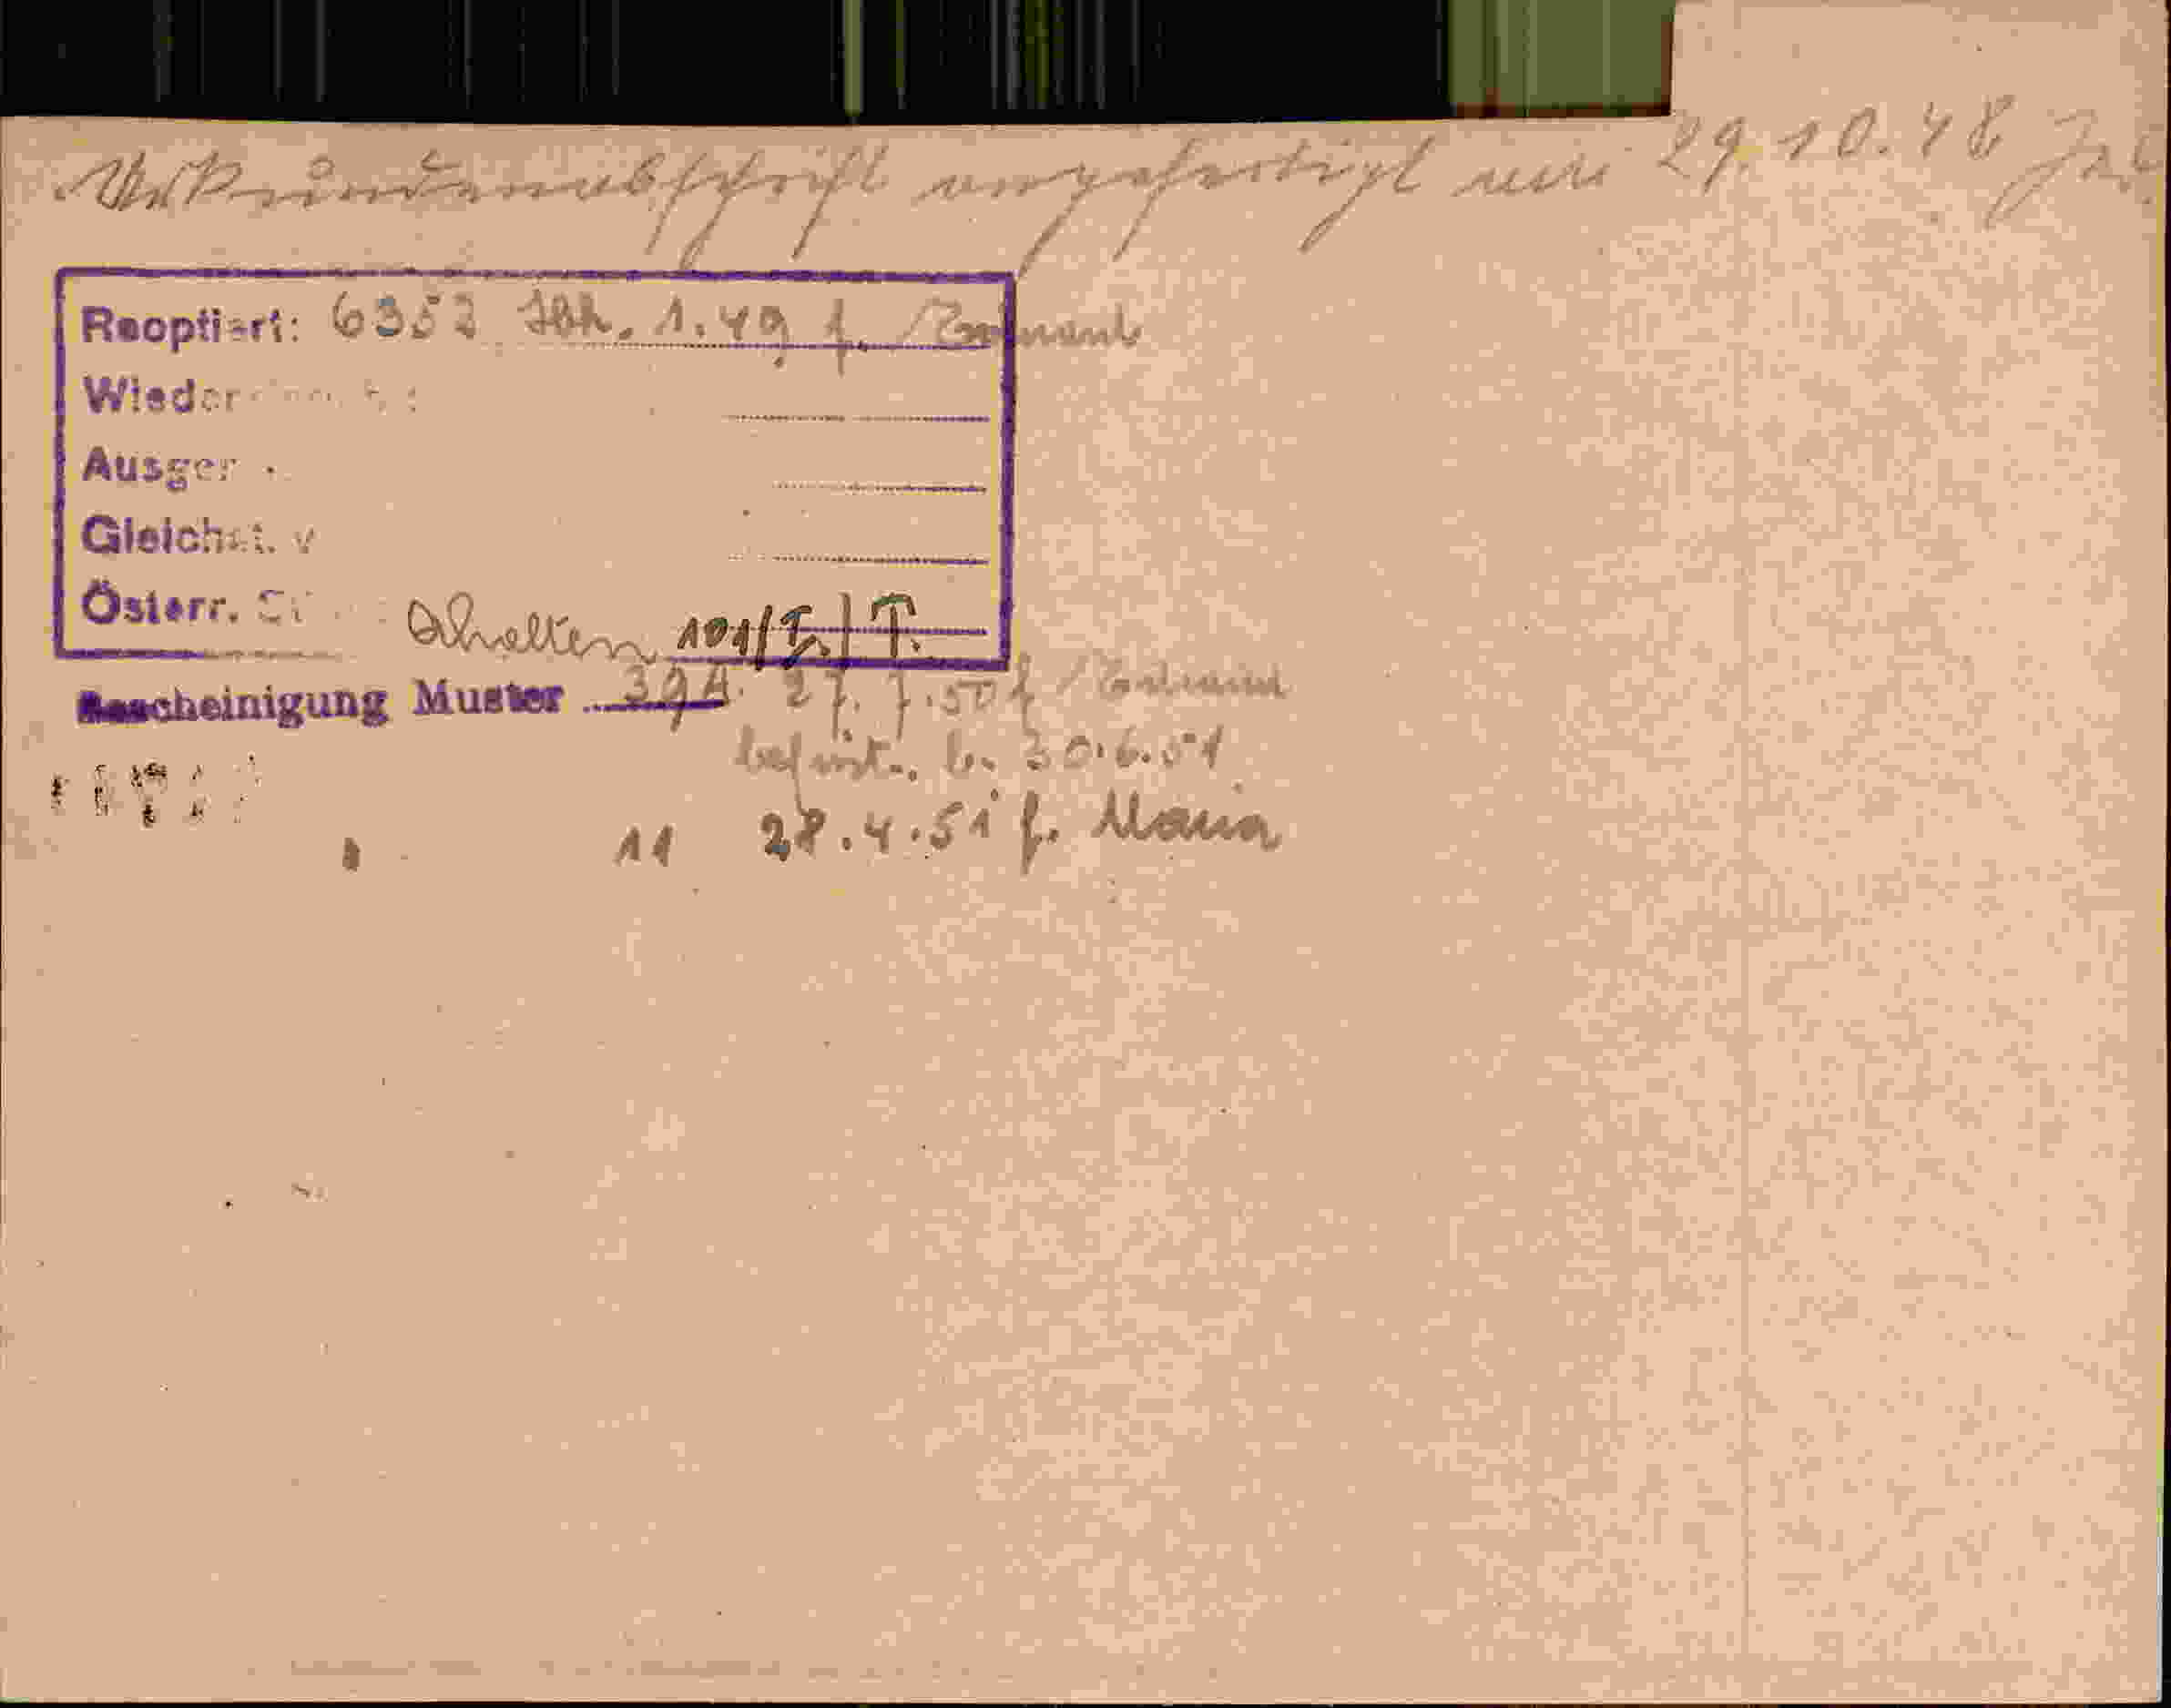 Urkundenabschrift angefertigt am 29.10.48
Reoptiert: 6353 Ibk. 1.49 f.
Ausger
Gleichst. v
Österr. erhalten 101/I./T.
Bescheinigung Muster 39A. 27.7.50 f
befrist. b. 30.6.51
11 28.4.51 f. Maria